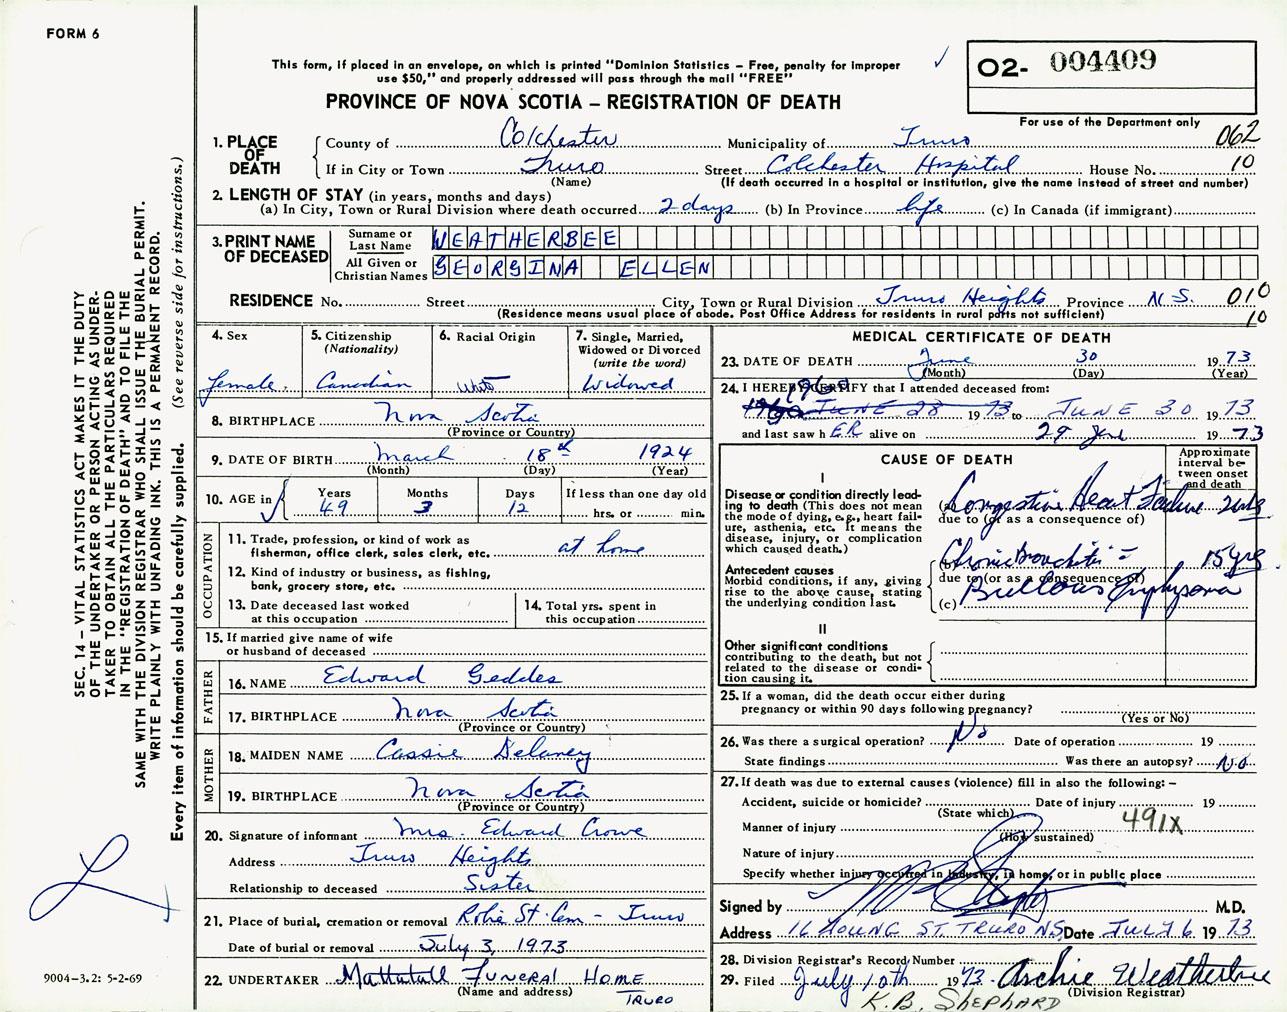 FORM 6
This form, if placed in an envelope, on which is printed "Dominion Statistics – Free, penalty for improper
use $50," and properly addressed will pass through the mail "FREE"
✓
O2- 004409
For use of the Department only
PROVINCE OF NOVA SCOTIA – REGISTRATION OF DEATH
062
1. PLACE OF DEATH
County of Colchester Municipality of Truro
If in City or Town Truro Street Colchester Hospital House No. 10
(Name) (If death occurred in a hospital or institution, give the name instead of street and number)
2. LENGTH OF STAY (in years, months and days)
(a) In City, Town or Rural Division where death occurred 2 days (b) In Province life (c) In Canada (if immigrant)
3. PRINT NAME OF DECEASED
Surname or Last Name WEATHERBEE
All Given or Christian Names GEORGINA ELLEN
RESIDENCE No. Street City, Town or Rural Division Truro Heights Province N.S. 010
(Residence means usual place of abode. Post Office Address for residents in rural parts not sufficient) 10
SEC. 14 – VITAL STATISTICS ACT MAKES IT THE DUTY
OF THE UNDERTAKER OR PERSON ACTING AS UNDER-
TAKER TO OBTAIN ALL THE PARTICULARS REQUIRED
IN THE "REGISTRATION OF DEATH" AND TO FILE THE
SAME WITH THE DIVISION REGISTRAR WHO SHALL ISSUE THE BURIAL PERMIT.
WRITE PLAINLY WITH UNFADING INK. THIS IS A PERMANENT RECORD.
Every item of information should be carefully supplied. (See reverse side for instructions.)
4. Sex
female
5. Citizenship
(Nationality)
Canadian
6. Racial Origin
White
7. Single, Married,
Widowed or Divorced
(write the word)
Widowed
8. BIRTHPLACE Nova Scotia
(Province or Country)
9. DATE OF BIRTH March 18th 1924
(Month) (Day) (Year)
10. AGE in
Years 49
Months 3
Days 12
If less than one day old
hrs. or min.
OCCUPATION
11. Trade, profession, or kind of work as
fisherman, office clerk, sales clerk, etc. at home
12. Kind of industry or business, as fishing,
bank, grocery store, etc.
13. Date deceased last worked
at this occupation
14. Total yrs. spent in
this occupation
15. If married give name of wife
or husband of deceased
FATHER
16. NAME Edward Geddes
17. BIRTHPLACE Nova Scotia
(Province or Country)
MOTHER
18. MAIDEN NAME Cassie Delaney
19. BIRTHPLACE Nova Scotia
(Province or Country)
20. Signature of informant Mrs. Edward Crowe
Address Truro Heights
Relationship to deceased Sister
21. Place of burial, cremation or removal Robie St. Cem – Truro
Date of burial or removal July 3, 1973
22. UNDERTAKER Mattatall Funeral Home
(Name and address) TRURO
9004–3.2: 5-2-69
MEDICAL CERTIFICATE OF DEATH
23. DATE OF DEATH June 30 1973
(Month) (Day) (Year)
24. I HEREBY CERTIFY that I attended deceased from:
1960
JUNE 28 1973 to JUNE 30 1973
and last saw h ER alive on 29 June 1973
CAUSE OF DEATH
Approximate
interval be-
tween onset
and death
I
Disease or condition directly lead-
ing to death (This does not
mean the mode of dying, e.g., heart fail-
ure, asthenia, etc. It means the
disease, injury, or complication
which caused death.)
(a) Congestive Heart Failure 2 wks
due to (or as a consequence of)
Antecedent causes
Morbid conditions, if any, giving
rise to the above cause, stating
the underlying condition last.
(b) Chronic Bronchitis = 15 yrs
due to (or as a consequence of)
(c) Bullous Emphysema
II
Other significant conditions
contributing to the death, but not
related to the disease or condi-
tion causing it.
25. If a woman, did the death occur either during
pregnancy or within 90 days following pregnancy?
(Yes or No)
26. Was there a surgical operation? No Date of operation 19
State findings Was there an autopsy? No
27. If death was due to external causes (violence) fill in also the following: –
Accident, suicide or homicide? Date of injury 19
(State which)
491X
Manner of injury
(How sustained)
Nature of injury
Specify whether injury occurred in industry, in home, or in public place
Signed by M.D.
Address 16 YOUNG ST. TRURO NS Date JULY 6 1973
28. Division Registrar's Record Number
29. Filed July 10th 1973. Archie Weatherbee
(Division Registrar)
K.B. SHEPHARD